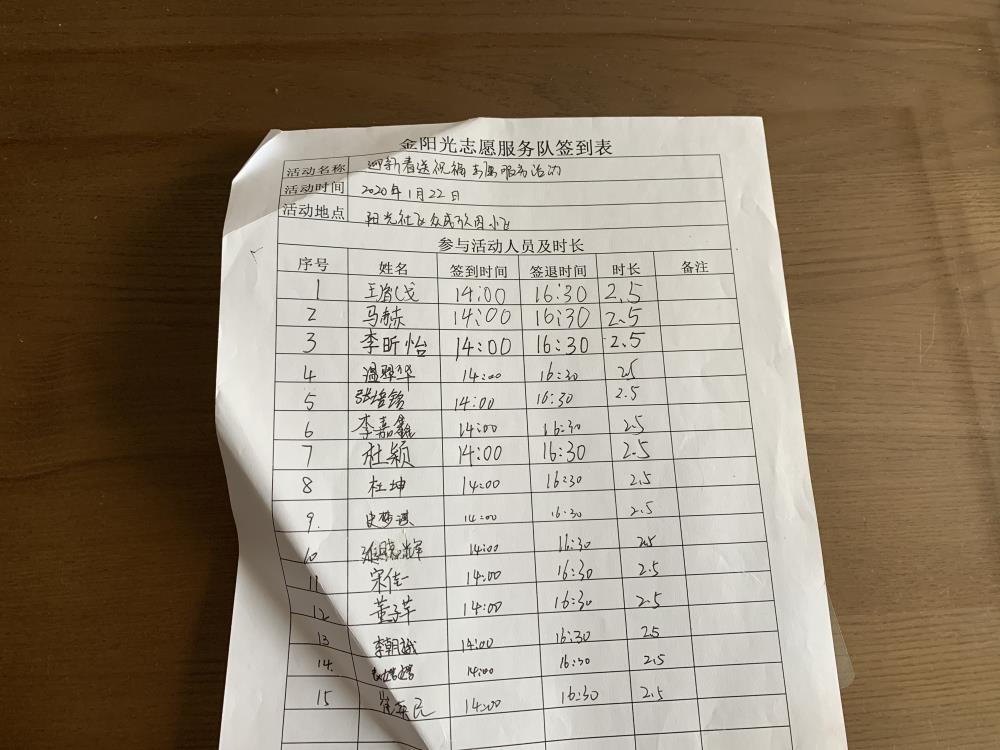 金阳光志愿服务队签到表
活动名称 迎新春送祝福志愿服务活动
活动时间 2020年1月22日
活动地点 阳光社区众成小区
参与活动人员及时长
序号 姓名 签到时间 签退时间 时长 备注
1 14:00 16:30 2.5
2 马赫 14:00 16:30 2.5
3 李昕怡 14:00 16:30 2.5
4 温骅华 14:00 16:30 2.5
5 张培铭 14:00 16:30 2.5
6 李嘉鑫 14:00 16:30 2.5
7 杜颖 14:00 16:30 2.5
8 杜坤 14:00 16:30 2.5
9. 史梦淇 14:00 16:30 2.5
10 14:00 16:30 2.5
11 宋佳一 14:00 16:30 2.5
12 董子芊 14:00 16:30 2.5
13 李朝越 14:00 16:30 2.5
14. 14:00 16:30 2.5
15 14:00 16:30 2.5